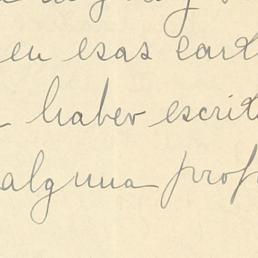 en esas cart
haber escrit
alguna prof